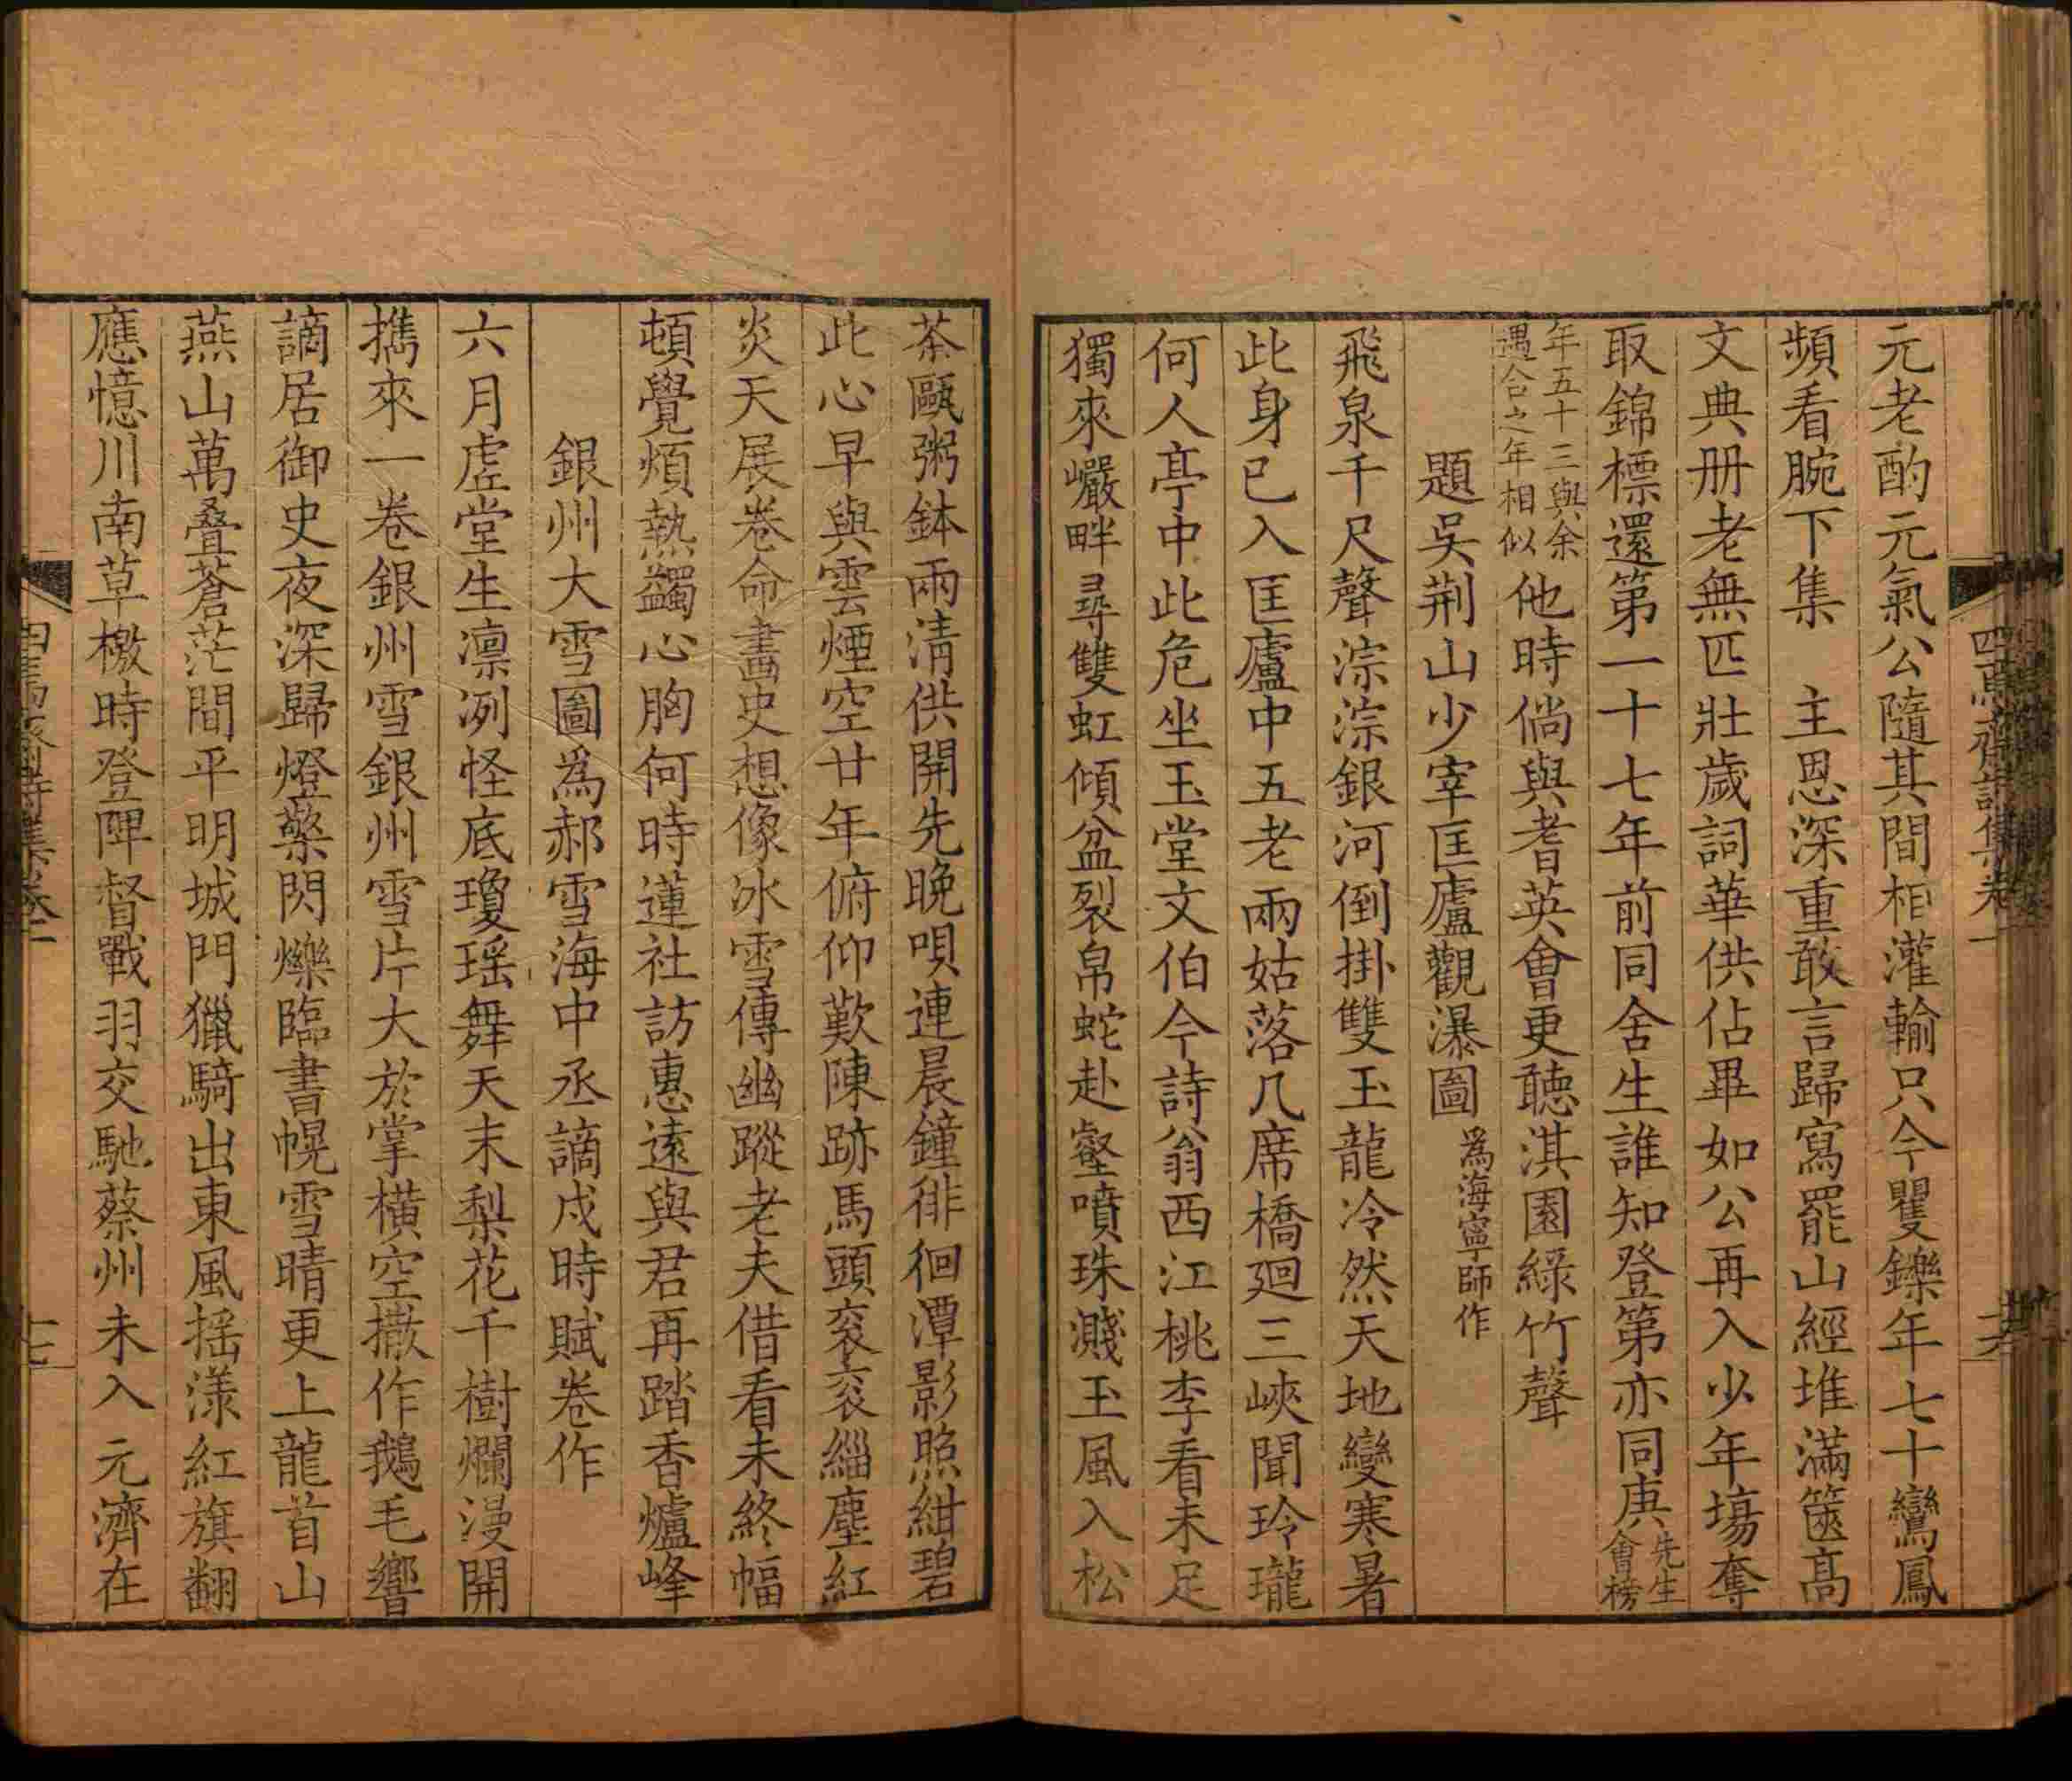 元老酌元氣公隨其間相灌輸只今矍鑠年七十鸞鳳
頻看腕下集　主恩深重敢言歸寫罷山經堆滿篋高
文典册老無匹壯歲詞華供佔畢如公再入少年塲奪
取錦標還第一十七年前同舍生誰知登第亦同庚先生會榜
年五十三與余遇合之年相似他時倘與耆英會更聽淇園綠竹聲
題吳荆山少宰匡廬觀瀑圖爲海寧師作
飛泉千尺聲淙淙銀河倒掛雙玉龍冷然天地變寒暑
此身已入匡廬中五老兩姑落几席橋廻三峽聞玲瓏
何人亭中此危坐玉堂文伯今詩翁西江桃李看未足
獨來巗畔尋雙虹傾盆裂帛蛇赴壑噴珠濺玉風入松
四焉齋詩集卷一
十六
茶甌粥鉢兩淸供開先晚唄連晨鐘徘徊潭影照紺碧
此心早與雲煙空廿年俯仰歎陳跡馬頭衮衮緇塵紅
炎天展卷命畫史想像冰雪傳幽蹤老夫借看未終幅
頓覺煩熱蠲心胸何時蓮社訪惠遠與君再踏香爐峰
銀州大雪圖爲郝雪海中丞謫戍時賦卷作
六月虛堂生凛冽怪底瓊瑶舞天末梨花千樹爛漫開
擕來一卷銀州雪銀州雪片大於掌橫空撒作鵝毛響
謫居御史夜深歸燈檠閃爍臨書幌雪晴更上龍首山
燕山萬叠蒼茫間平明城門獵騎出東風摇漾紅旗翻
應憶川南草檄時登陴督戰羽交馳蔡州未入元濟在
四焉齋詩集卷一
十七